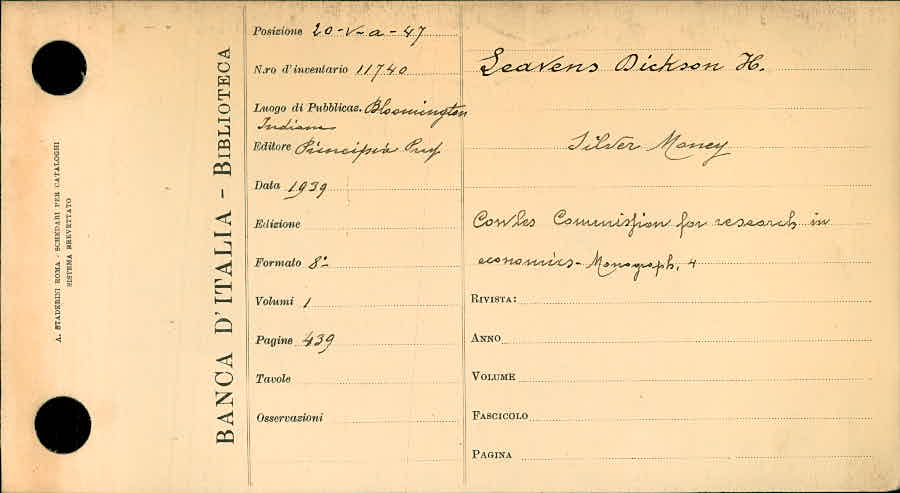 A. STADERINI ROMA - SCHEDARI PER CATALOGHI
SISTEMA BREVETTATO
BANCA D'ITALIA - BIBLIOTECA
Posizione 20-V-a-47
N.ro d'inventario 11740
Luogo di Pubblicaz. Bloomington
Indiana
Editore Principia Press
Data 1939
Edizione
Formato 8°
Volumi 1
Pagine 439
Tavole
Osservazioni
Leavens Dickson H.
Silver Money
Cowles Commission for research in
economics - Monograph, 4
RIVISTA:
ANNO
VOLUME
FASCICOLO
PAGINA